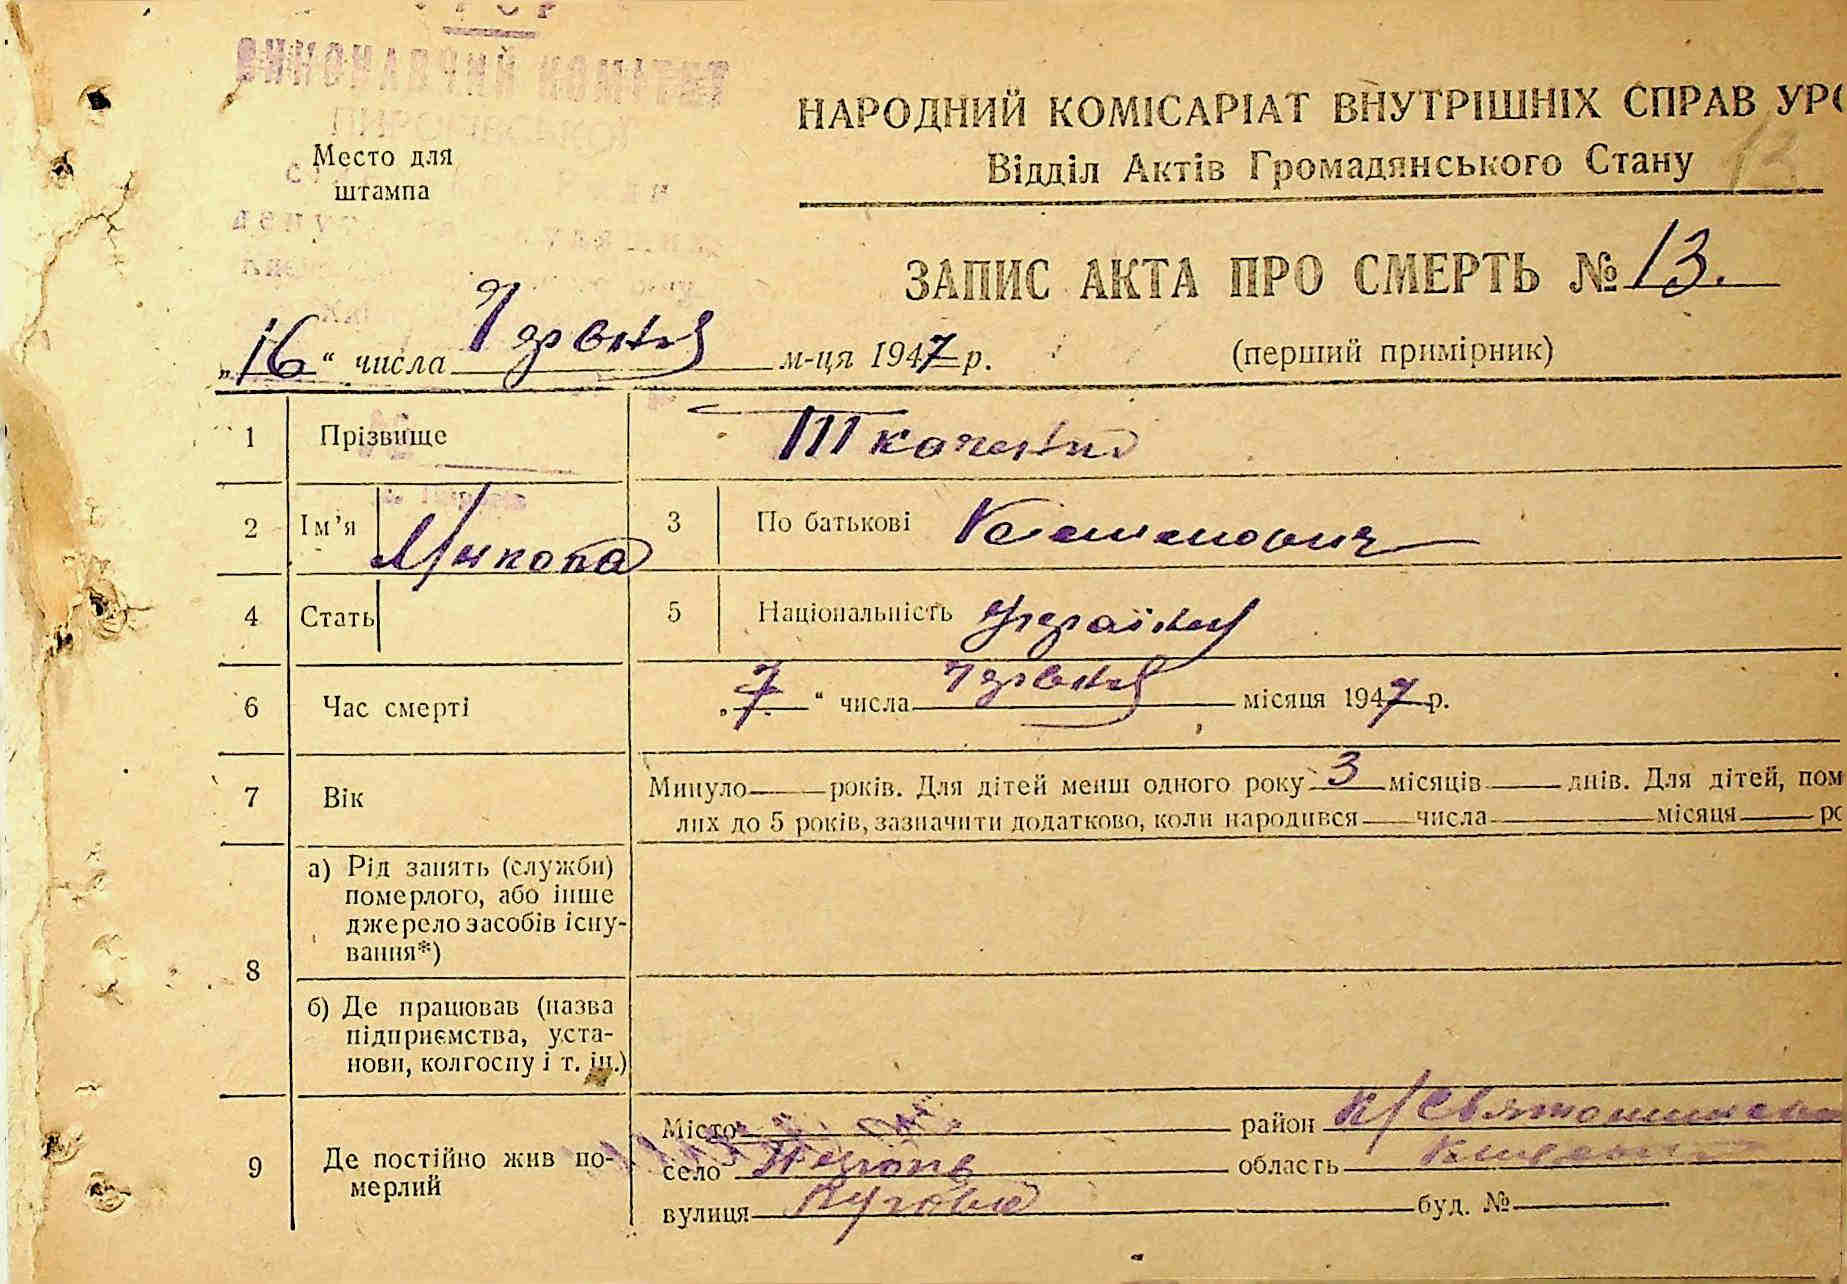 НАРОДНИЙ КОМІСАРІАТ ВНУТРІШНІХ СПРАВ УРС
Відділ Актів Громадянського Стану
13
Место для
штампа
ЗАПИС АКТА ПРО СМЕРТЬ № 13.
(перший примірник)
„16“ числа Червня м-ця 1947 р.
1 Прізвище Ткаченко
2 Ім’я Микола 3 По батькові
4 Стать 5 Національність Українец
6 Час смерті „7“ числа Червня місяця 1947 р.
7 Вік Минуло років. Для дітей менш одного року 3 місяців днів. Для дітей, пом
лих до 5 років, зазначити додатково, коли народився числа місяця ро
8 а) Рід занять (служби)
померлого, або інше
джерело засобів існу-
вання*)
б) Де працював (назва
підприємства, уста-
нови, колгоспу і т. ін.)
9 Де постійно жив по-
мерлий
Місто район К/Святошинськ
село область Київська
вулиця Лугова буд. №